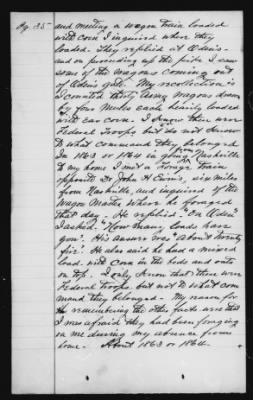 Pg. 35
and meeting a wagon train loaded
with corn I inquired where they
loaded. They replied at
and on proceeding up the pike I saw
some of the wagons coming out
of gate. My recollection is
I counted thirty heavy wagons drawn
by four Mules each heavily loaded
with ear corn. I know there were
Federal Troops but do not know
to what command they belonged
In 1863 or 1864 in going from Nashville
to my home I met a Forage train
opposite Dr. John H six miles
from Nashville and inquired of the
Wagon Master where he foraged
that day. He replied "On
I asked. "How many loads have
you". His answer was "about Twenty
He also said he had a mixed
load with corn in the beds and oats
on top. I only know that these were
Federal troops but not to what com
mand they belonged. My reason for
remembering the other facts were that
I was afraid they had been foraging
on me during my absence from
home. About 1863 or 1864.